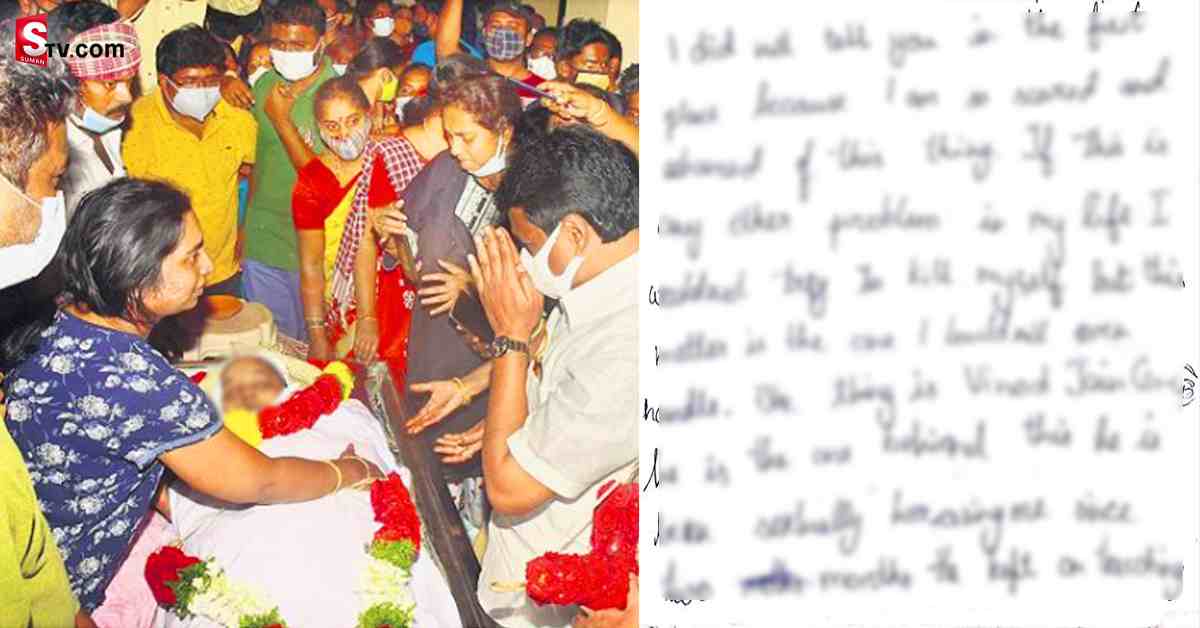 STV.com
SUMAN
I did not tell you in the first
place because I am so scared and
ashamed of this thing. If this is
any other problem in my life I
try to kill myself but this
matter is the one I even
handle. The thing is Vinod Jain
he is the one behind this he is
been sexually harassing me since
two months He kept on touching